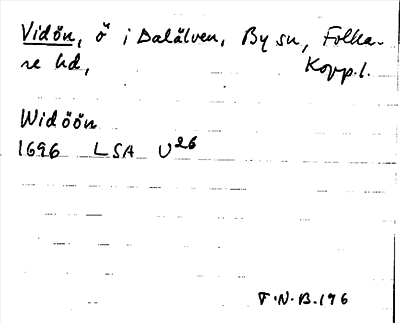 Vidön, ö i Dalälven, By sn, Folka-
re hd, Kopp.l.
Widöön
1696 LSA U26
F.N.B.196